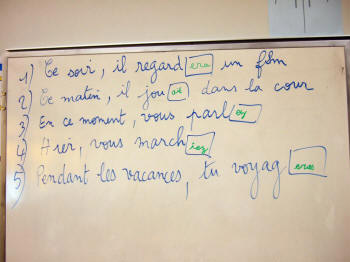 1) Ce soir, il regardera un film
2) Ce matin, il jouait dans la cour
3) En ce moment, vous parlez
4) Hier, vous marchiez
5) Pendant les vacances, tu voyageras